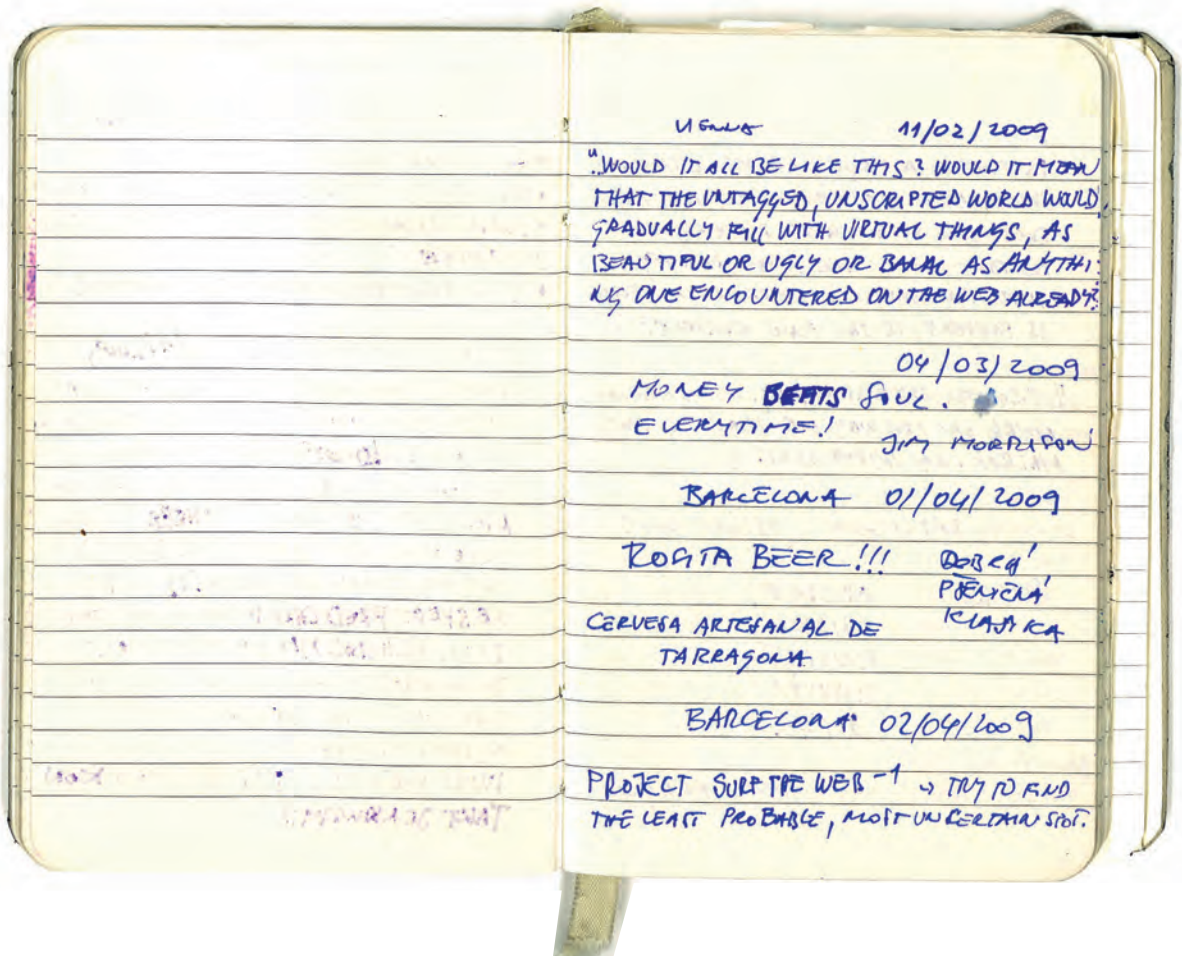 VIENNA 11/02/2009
"WOULD IT ALL BE LIKE THIS? WOULD IT MEAN
THAT THE UNTAGGED, UNSCRIPTED WORLD WOULD
GRADUALLY FILL WITH VIRTUAL THINGS, AS
BEAUTIFUL OR UGLY OR BANAL AS ANYTHI-
NG ONE ENCOUNTERED ON THE WEB ALREADY?
04/03/2009
MONEY BEATS SOUL.
EVERYTIME!
JIM MORRISON
BARCELONA 01/04/2009
ROSITA BEER!!! DOBRÁ
PŠENIČNÁ
KLASIKA
CERVESA ARTESANAL DE
TARRAGONA
BARCELONA 02/04/2009
PROJECT SURF THE WEB -1 → TRY TO FIND
THE LEAST PROBABLE, MOST UNCERTAIN SPOT.